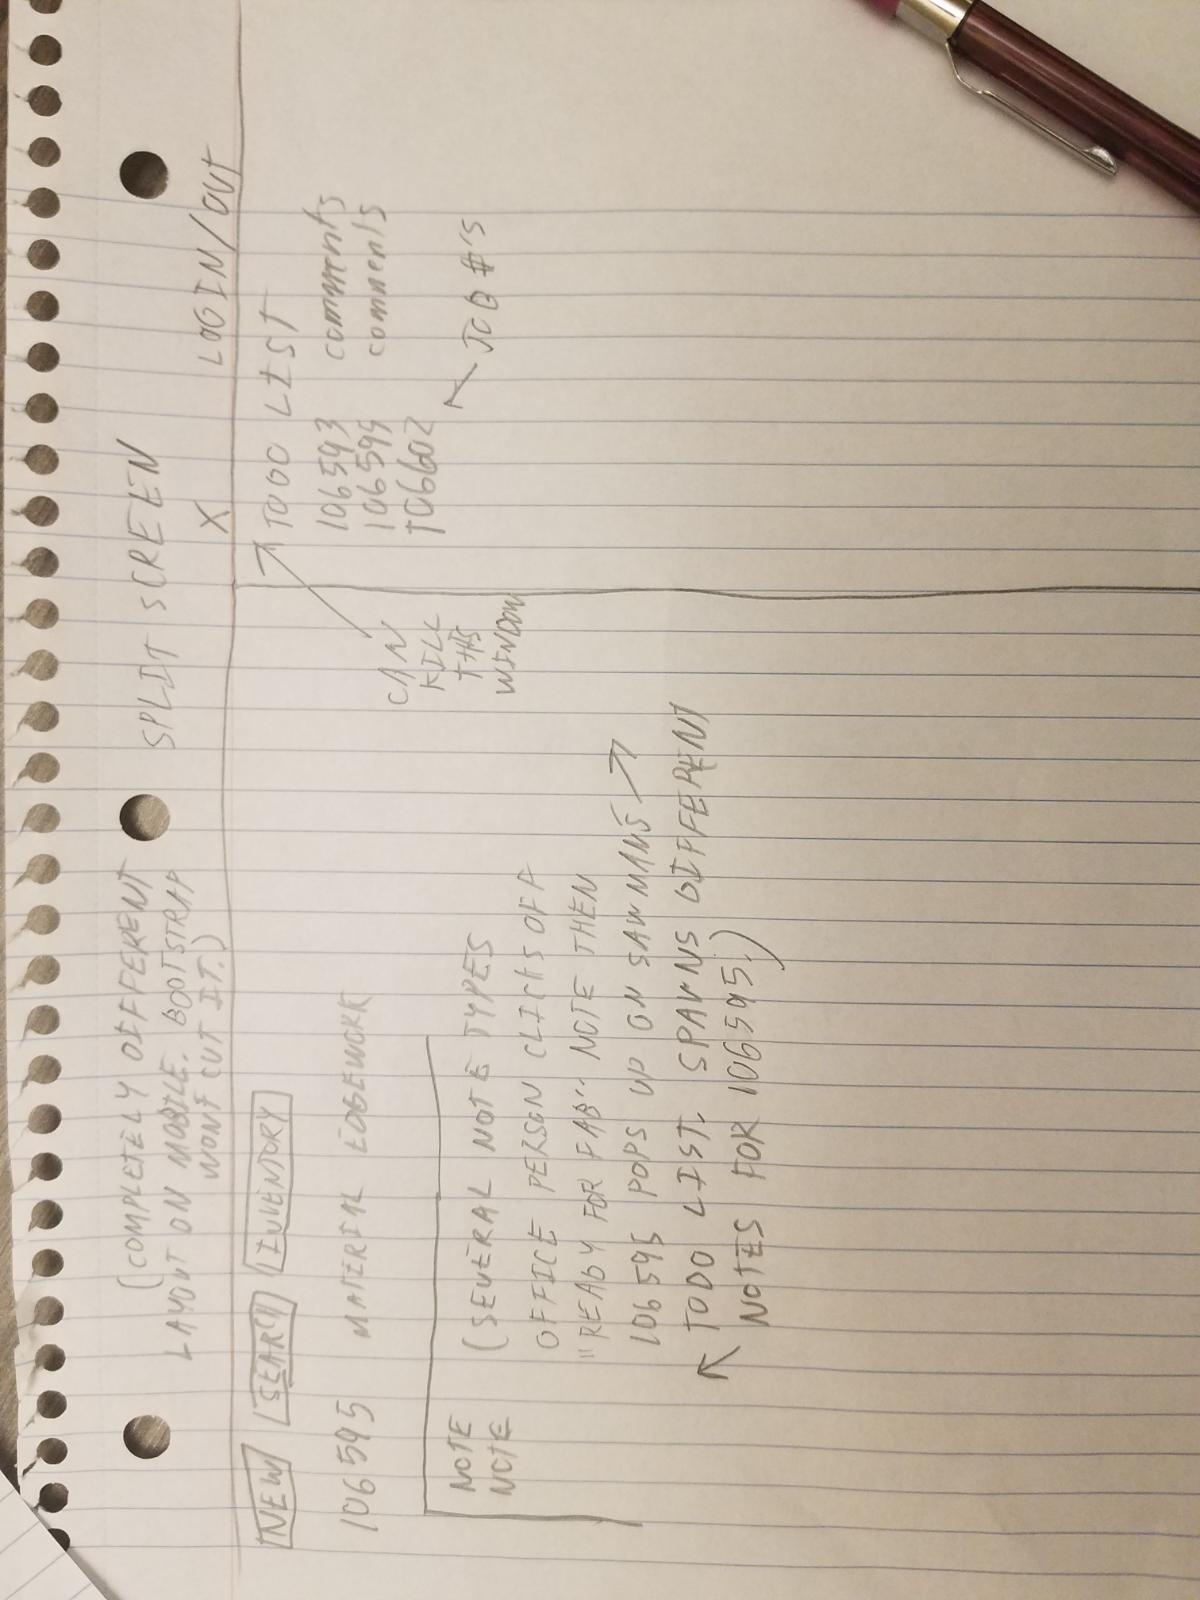 (COMPLETELY DIFFERENT
LAYOUT ON MOBILE. BOOTSTRAP
WONT CUT IT.)
SPLIT SCREEN
X LOGIN/OUT
NEW SEARCH INVENTORY
106595 MATERIAL EDGEWORK
NOTE
NOTE
(SEVERAL NOTE TYPES
OFFICE PERSON CLICKS OFF
"READY FOR FAB" NOTE THEN
106595 POPS UP ON SAWMANS
TODO LIST. SPAWNS DIFFERENT
NOTES FOR 106595.)
CAN
KILL
THIS
WINDOW
TODO LIST
106593 comments
106595 comments
106602
JOB #'S